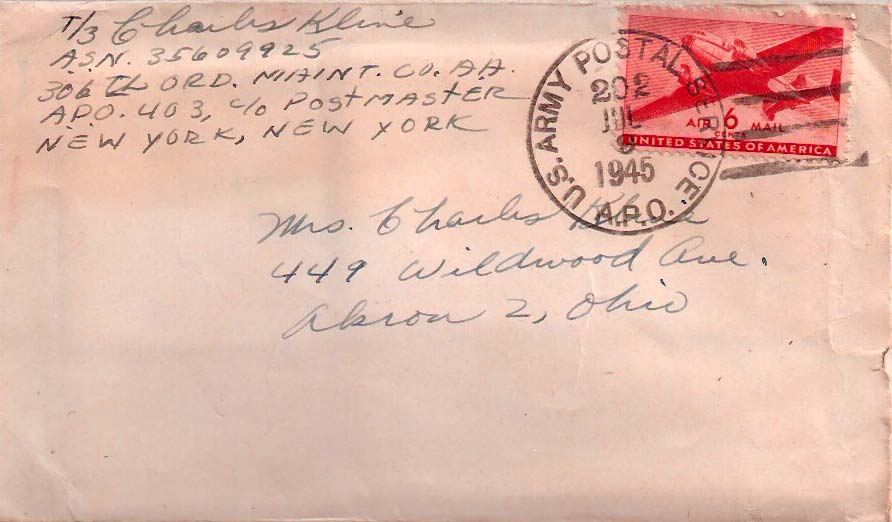 T/3 Charles Kline
ASN. 35609925
306th ORD. MAINT. CO. AA.
APO. 403, c/o PostMAStER
NEW YORK, NEW YORK
U.S. ARMY POSTAL SERVICE
202
JUL
1945
A.P.O.
AIR 6 MAIL
CENTS
UNITED STATES OF AMERICA
Mrs. Charles Kline
449 Wildwood Ave.
Akron 2, Ohio